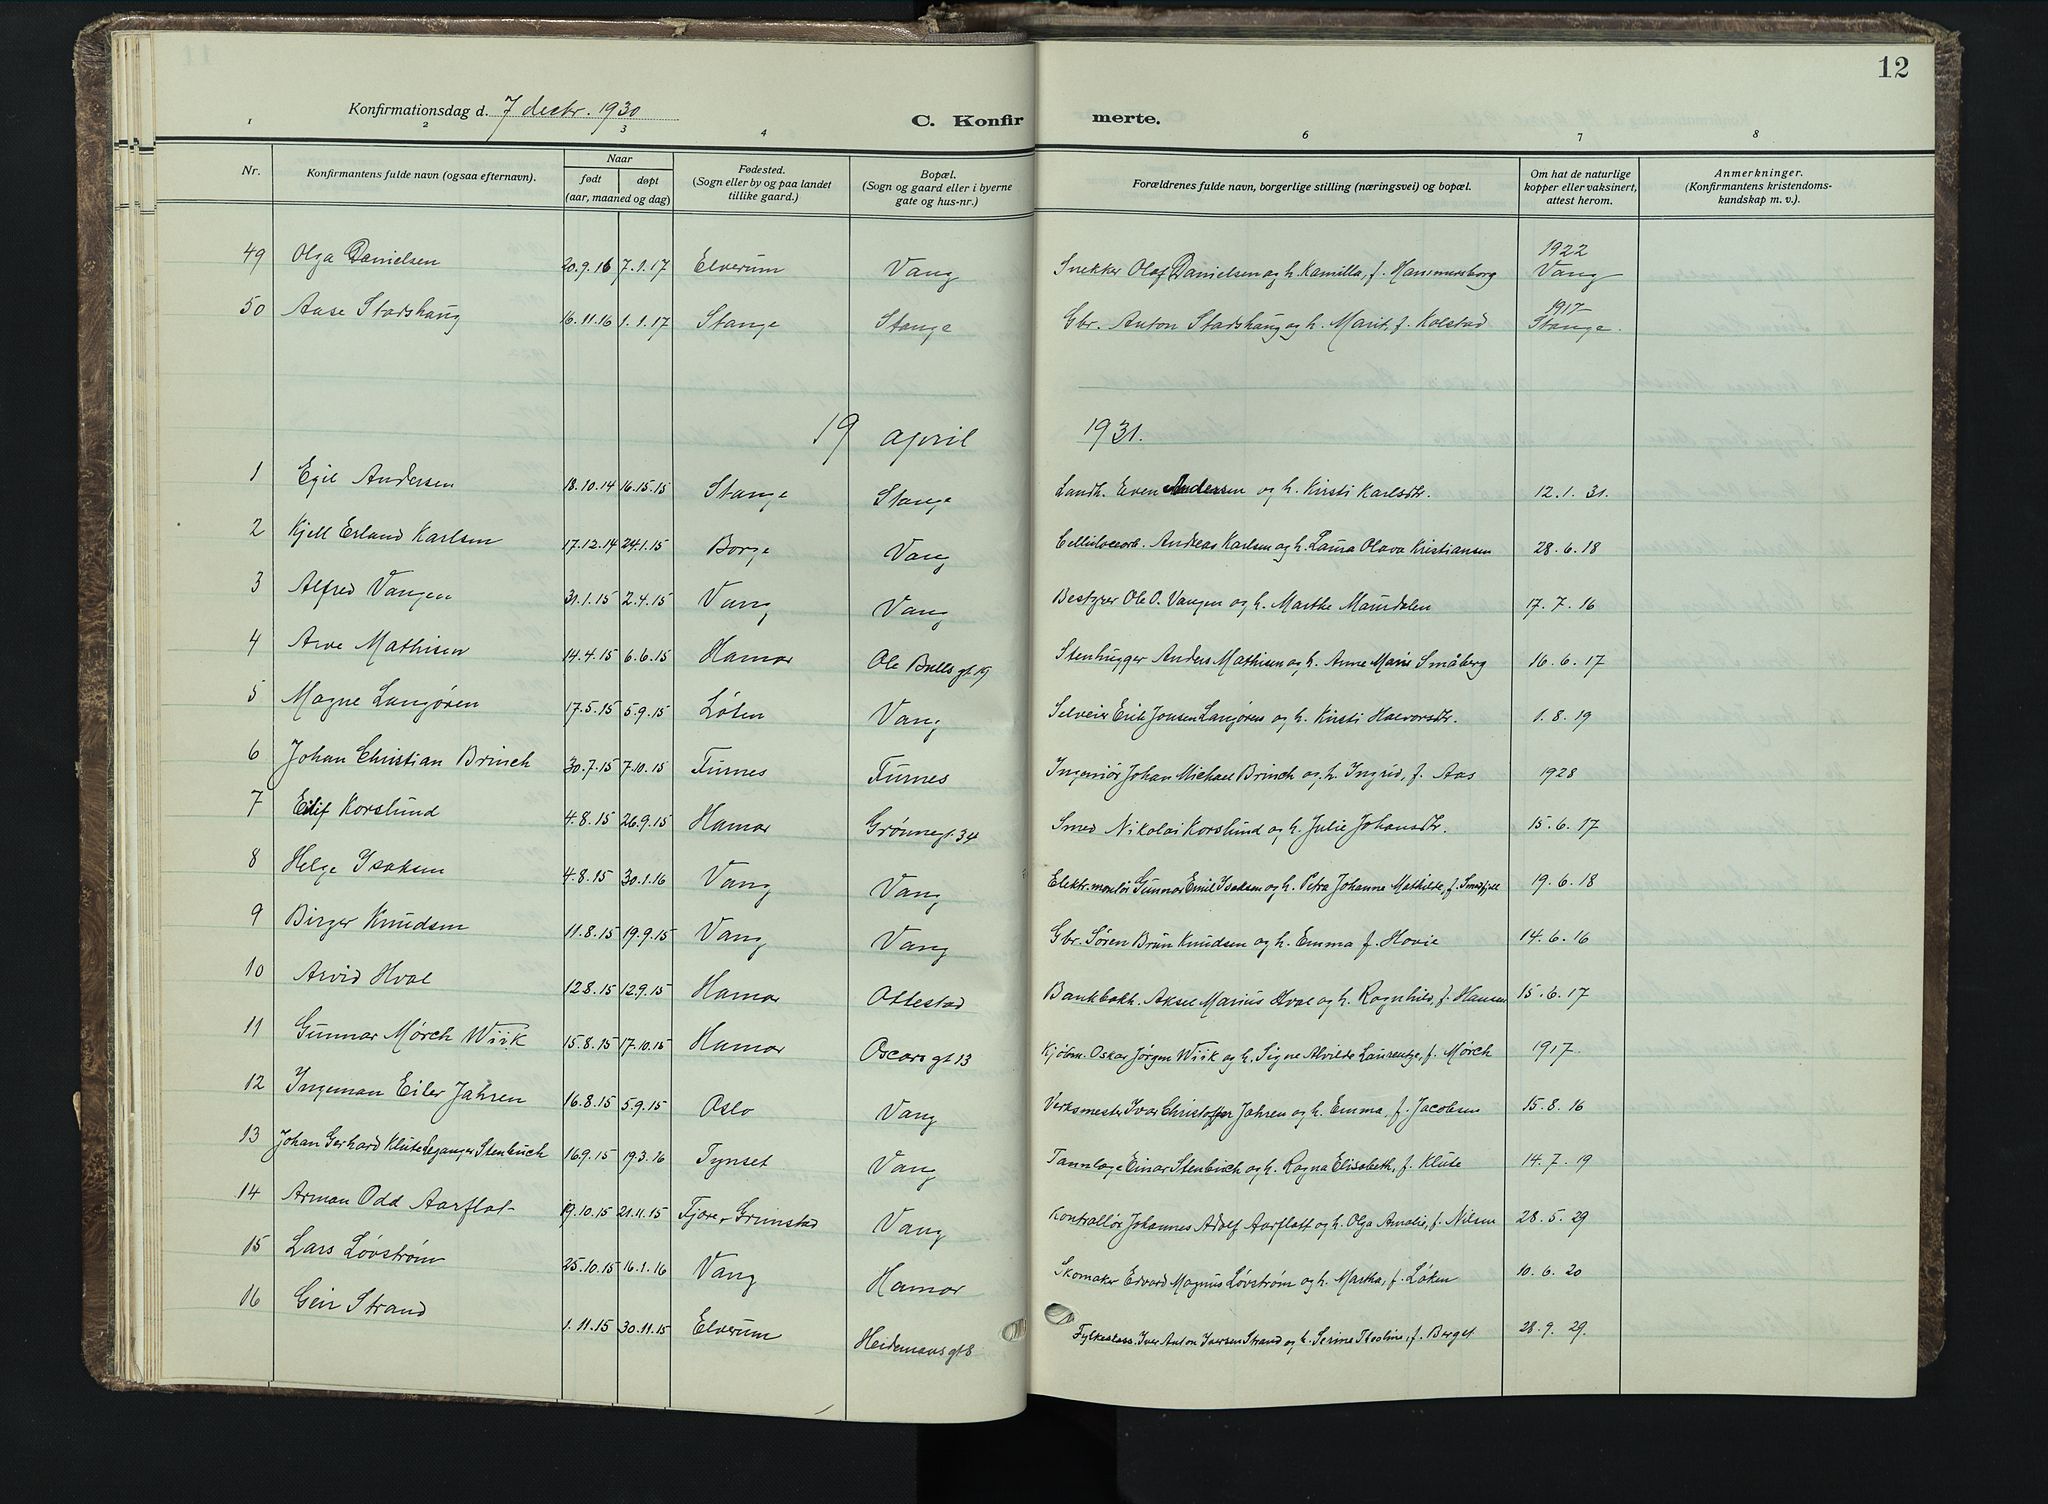 12
Konfirmationsdag d. 7 decbr. 1930
C. Konfirmerte.
1 2 3 4 5 6 7 8
Nr. | Konfirmantens fulde navn (ogsaa efternavn). | Naar født | døpt (aar, maaned og dag) | Fødested. (Sogn eller by og paa landet tillike gaard.) | Bopæl. (Sogn og gaard eller i byerne gate og hus-nr.) | Forældrenes fulde navn, borgerlige stilling (næringsvei) og bopæl. | Om hat de naturlige kopper eller vaksinert, attest herom. | Anmerkninger. (Konfirmantens kristendomskundskap m. v.).
49 Olga Danielsen 20.9.16 7.1.17 Elverum Vang Snekker Olaf Danielsen og h. Kamilla, f. Hammersborg 1922 Vang
50 Aase Stadshaug 16.11.16 1.1.17 Stange Stange Gbr. Anton Stadshaug og h. Marit, f. Kolstad 1917 Stange.
19 april 1931.
1 Egil Andersen 18.10.14 16.15.15 Stange Stange Landh. Even Andersen og h. Kirsti Karlsdtr. 12.1.31.
2 Kjell Erland Karlsen 17.12.14 24.1.15 Borge Vang Cellulosearb. Andreas Karlsen og h. Laura Olava Kristiansen 28.6.18
3 Alfred Vangen 31.1.15 2.4.15 Vang Vang Bestyrer Ole O. Vangen og h. Marthe Maurdalen 17.7.16
4 Arve Mathisen 14.4.15 6.6.15 Hamar Ole Bulls gt 19 Stenhugger Anders Mathisen og h. Anne Marie Småberg 16.6.17
5 Magne Langøren 17.5.15 5.9.15 Løten Vang Selveier Erik Jonsen Langøren og h. Kirsti Halvorsdtr. 1.8.19
6 Johan Christian Brinch 30.7.15 7.10.15 Furnes Furnes Ingeniør Johan Michael Brinch og h. Ingrid, f. Aas 1928
7 Eilif Korslund 4.8.15 26.9.15 Hamar Grønnegt. 34 Smed Nikolai Korslund og h. Julie Johansdtr. 15.6.17
8 Helge Isaksen 4.8.15 30.1.16 Vang Vang Elektr.montør Gunnar Emil Isaksen og h. Petra Johanne Mathilde, f. Smedfjell 19.6.18
9 Birger Knudsen 11.8.15 19.9.15 Vang Vang Gbr. Søren Brun Knudsen og h. Emma f. Hovie 14.6.16
10 Arvid Hval 12.8.15 12.9.15 Hamar Ottestad Bankbokh. Aksel Marius Hval og h. Ragnhild, f. Hansen 15.6.17
11 Gunnar Mørch Wiik 15.8.15 17.10.15 Hamar Oscars gt 13 Kjøbm. Oskar Jørgen Wiik og h. Signe Alvilde Laurentze, f. Mørch 1917.
12 Ingeman Eiler Jahren 16.8.15 5.9.15 Oslo Vang Verksmester Ivar Christoffer Jahren og h. Emma, f. Jacobsen 15.8.16
13 Johan Gerhard Klute Steganger Stenbuch 16.9.15 19.3.16 Tynset Vang Tannlæge Einar Stenbuch og h. Ragna Elisabeth, f. Klute 14.7.19
14 Arman Odd Aarflot 19.10.15 21.11.15 Fjære, Grimstad Vang Kontrollør Johannes Adolf Aarflott og h. Olga Amalie, f. Nilsen 28.5.29
15 Lars Løvstrøm 25.10.15 16.1.16 Vang Hamar Skomaker Edvard Magnus Løvstrøm og h. Martha, f. Løken 10.6.20
16 Geir Strand 1.11.15 30.11.15 Elverum Heidemans gt 8 Fylkeskass. Iver Anton Iversen Strand og h. Serine Theoline, f. Berget 28.9.29.